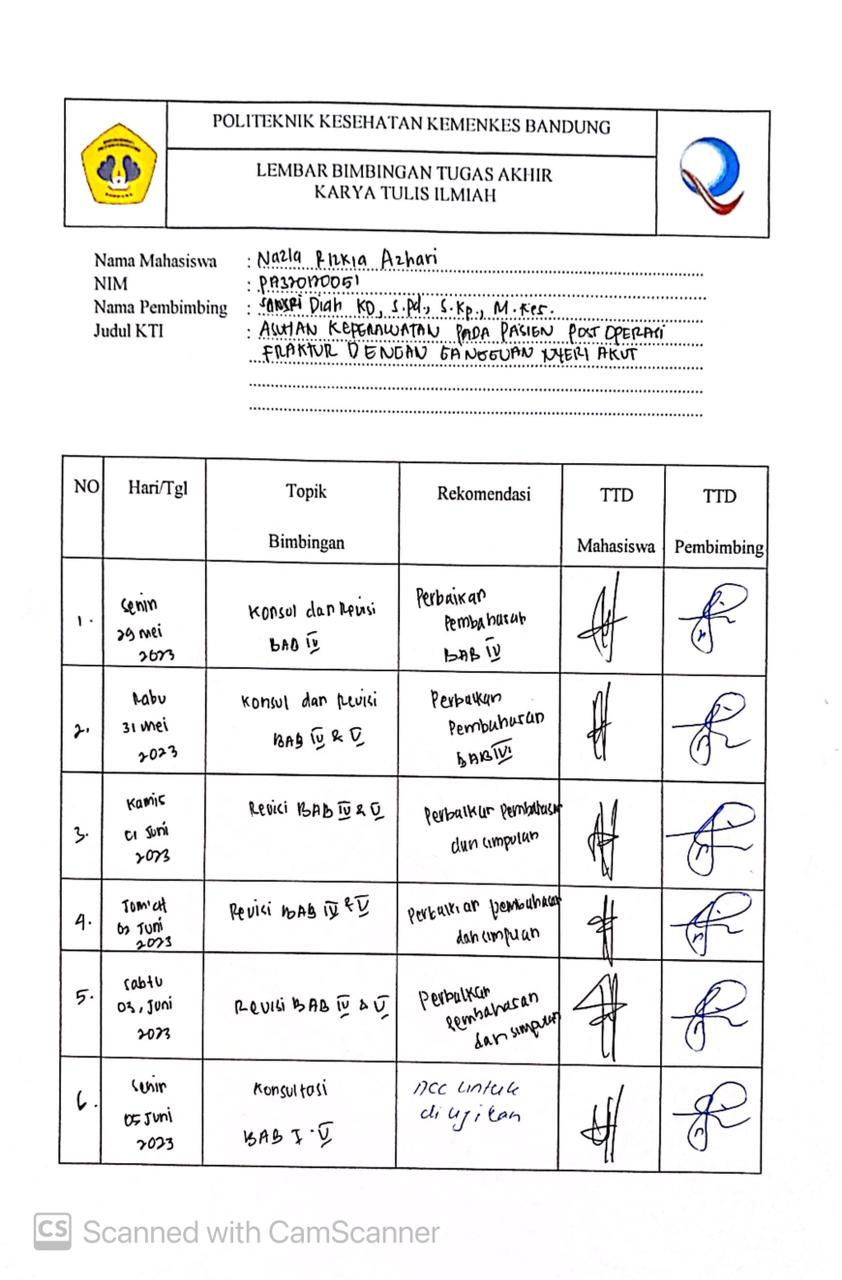 POLITEKNIK KESEHATAN KEMENKES BANDUNG
LEMBAR BIMBINGAN TUGAS AKHIR
KARYA TULIS ILMIAH
Nama Mahasiswa : Nazla Rizkia Azhari
NIM :
Nama Pembimbing : Diah KD, S.Pd., S.Kp., M.Kes.
Judul KTI : ASUHAN KEPERAWATAN PADA PASIEN POST OPERASI
FRAKTUR DENGAN GANGGUAN NYERI AKUT
NO Hari/Tgl Topik Rekomendasi TTD TTD
Bimbingan Mahasiswa Pembimbing
1. Senin
29 Mei
2023
Konsul dan Revisi
BAB IV
Perbaikan
Pembahasan
BAB IV
2. Rabu
31 Mei
2023
Konsul dan Revisi
BAB IV & V
Perbaikan
Pembahasan
BAB IV
3. Kamis
01 Juni
2023
Revisi BAB IV & V
Perbaikan Pembahasan
dan simpulan
4. Jum'at
02 Juni
2023
Revisi BAB IV & V
Perbaikan pembahasan
dan simpulan
5. Sabtu
03, Juni
2023
Revisi BAB IV & V
Perbaikan
Pembahasan
dan simpulan
6. Senin
05 Juni
2023
Konsultasi
BAB I - V
Acc untuk
di ujikan
CS Scanned with CamScanner